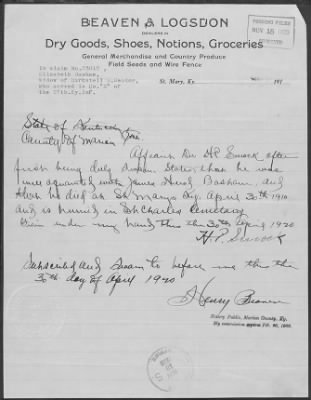 BEAVEN & LOGSDON
DEALERS IN
Dry Goods, Shoes, Notions, Groceries
General Merchandise and Country Produce
Field Seeds and Wire Fence
In claim No.
Elizabeth
widow of
who served in Co."
of
the 27th.Ky.Inf.
St. Mary, Ky.
191
State of Kentucky
County of Marion
Affiant Dr HP after
first being duly sworn States that he was
acquainted with James Basham and
that he died at St Marys Ky. April 30th 1910
and is buried in St Charles Cemetery
Given under my hand this the 30th April 1920
H.P.
Subscribed and Sworn to before me this the
30th day of April 1920
Henry Beaven
Notary Public, Marion County, Ky.
My commission expires Feb.